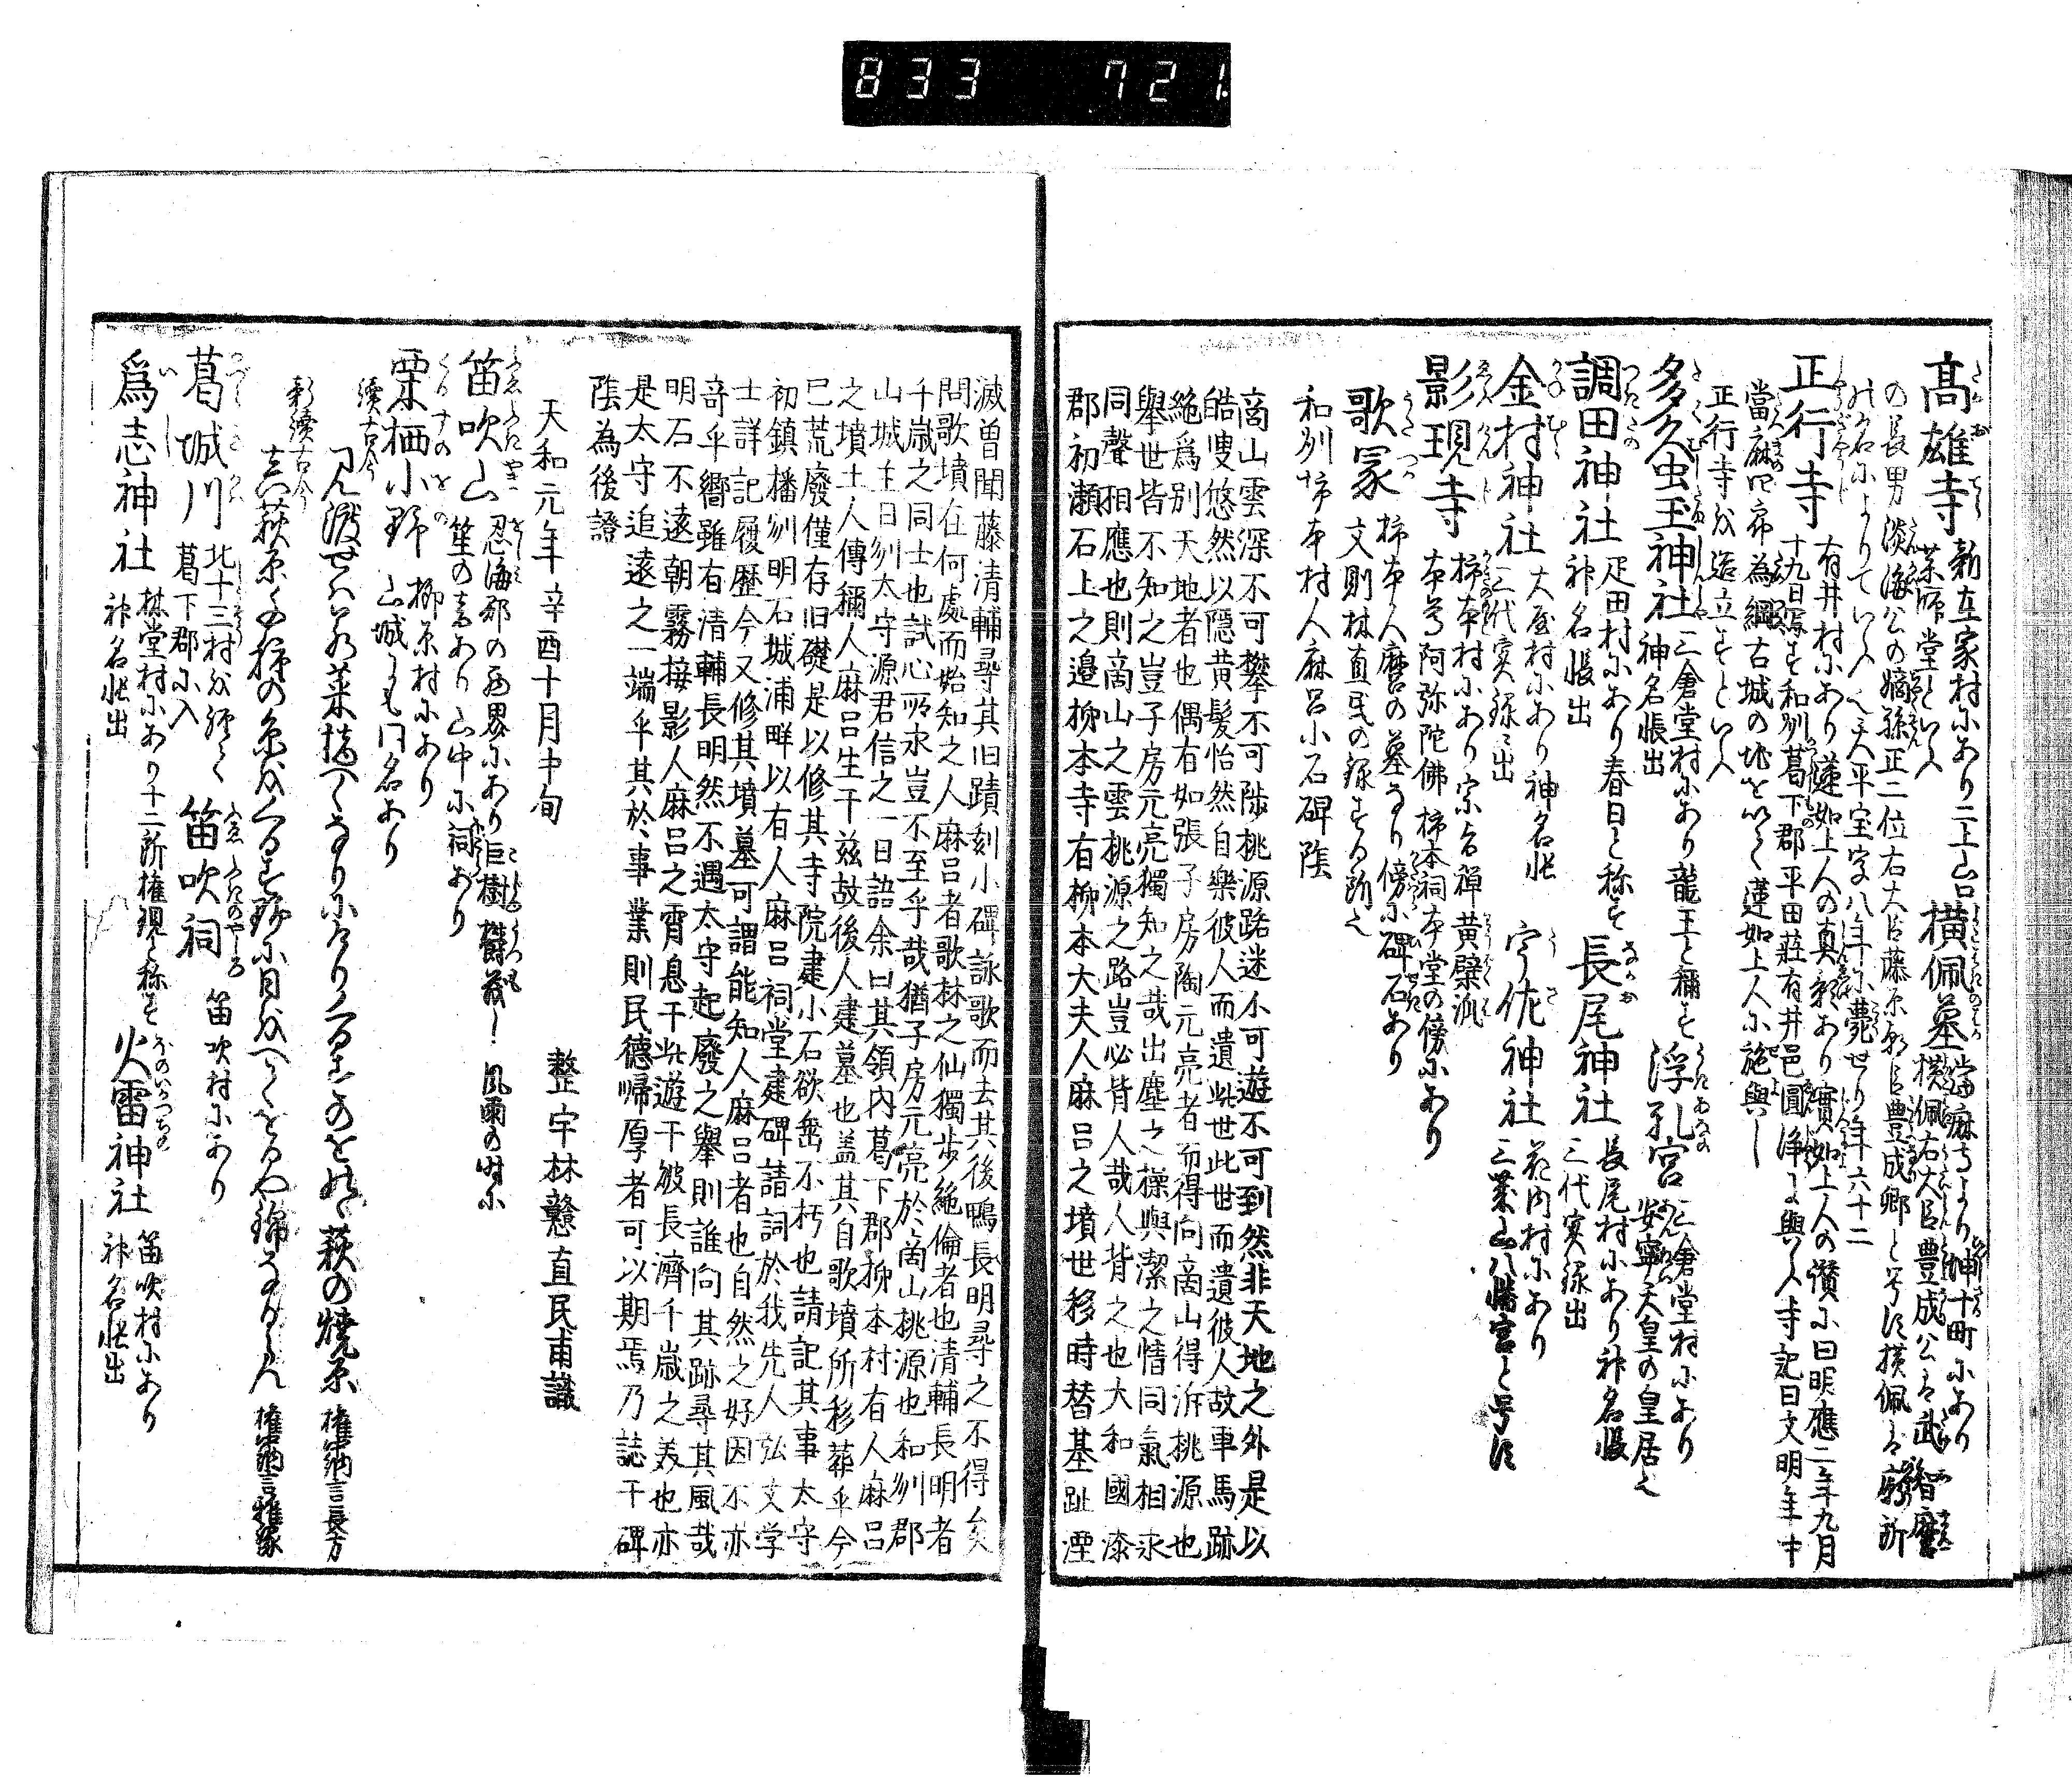 833 721.
高雄寺 新在家村にあり二上山口
薬師堂といふ
横佩墓 當麻寺より坤十町にあり
横佩右大臣豊成公は武智麿
の長男淡海公の嫡孫正二位右大臣藤原朝臣豊成卿と号す横佩は廟所
の名によりていふ人天平宝字八年に薨せり年六十二
正行寺 有井村にあり蓮如上人の真影あり實如上人の讃に曰明應二年九月
十九日寫す和刕葛下郡平田莊有井邑圓浄に與ふ寺記曰文明年中
當麻四郎為綱古城の地を以て蓮如上人に施與し
正行寺を造立すといふ
多久虫玉神社 三倉堂村にあり龍王と稱す
神名帳出
浮孔宮 三倉堂村にあり
安寧天皇の皇居也
調田神社 疋田村にあり春日と称す
神名帳出
長尾神社 長尾村にあり神名帳
三代実録出
金村神社 大屋村にあり神名帳
三代実録に出
宇佐神社 花内村にあり
三葉山八幡宮と号す
影現寺 柿本村にあり宗旨禅黄檗派
本尊阿弥陀佛柿本祠本堂の傍にあり
歌冢 柿本人麿の墓なり傍に碑石あり
文則林直民の録する所也
和刕柿本村人麻呂小石碑陰
商山雲深不可攀不可陟桃源路迷不可遊不可到然非天地之外是以
皓叟悠然以隠黄髪怡然自樂彼人而遺此世此世而遺彼人故車馬跡
絶為別天地者也偶有如張子房陶元亮者而得向商山得泝桃源也
舉世皆不知之豈子房元亮獨知之哉出塵之操與潔之情同氣相求
同聲相應也則商山之雲桃源之路豈必皆人哉人背之也大和國添
郡初瀬石上之邊柳本寺有柳本大夫人麻呂之墳世移時替基趾湮
滅曽聞藤清輔尋其旧蹟刻小碑詠歌而去其後鴨長明尋之不得矣
問歌墳在何處而始知之人麻呂者歌林之仙獨歩絶倫者也清輔長明者
千歳之同士也試心所求豈不至乎哉猶子房元亮於商山桃源也和刕郡
山城主日刕太守源君信之一日語余曰其領内葛下郡柳本村有人麻呂
之墳土人傳稱人麻呂生于茲故後人建墓也盖其自歌墳所移葬乎今
已荒廢僅存旧礎是以修其寺院建小石欲無不朽也請記其事太守
初鎮播刕明石城浦畔以有人麻呂祠堂建碑請詞於我先人弘文学
士詳記履歴今又修其墳墓可謂能知人麻呂者也自然之好因不亦
奇乎嚮雖有清輔長明然不遇太守起廢之舉則誰向其跡尋其風哉
明石不遠朝霧接影人麻呂之霄息于此遊于彼長濟千歳之美也亦
是太守追遠之一端乎其於事業則民德帰厚者可以期焉乃誌于碑
陰為後證
天和元年辛酉十月中旬 整宇林戇直民甫識
笛吹山 忍海郡の西界にあり巨樹欝茂し風雨の時に
笙の音あり山中に祠あり
栗栖小野 柳原村にあり
山城にも同名あり
續古今
見渡せは若菜摘へくなりにけりくるすのをのの萩の焼原 権中納言長方
新續古今
真萩原
権中納言雅縁
葛城川 北十三村を経て
葛下郡に入
笛吹祠 笛吹村にあり
爲志神社 林堂村にあり十二所権現と称す
神名帳出
火雷神社 笛吹村にあり
神名帳出